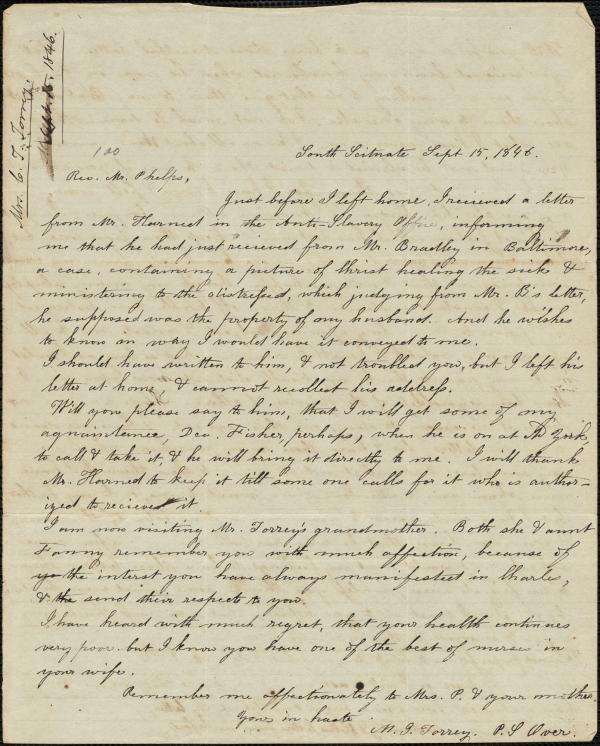 Mrs. C. T. Torrey.
Sept. 15, 1846.
100
South Scituate Sept 15, 1846.
Rev. Mr. Phelps,
Just before I left home, I recieved a letter
from Mr. Harned in the Anti-Slavery Office, informing
me that he had just recieved from Mr. Bradley in Baltimore,
a case, containing a picture of Christ healing the sick &
ministering to the distressed, which judging from Mr. B's letter,
he supposed was the property of my husband. And he wishes
to know in way I would have it conveyed to me.
I should have written to him, & not troubled you, but I left his
letter at home, & cannot recollect his address.
Will you please say to him, that I will get some of my
aquaintance, Dea. Fisher, perhaps, when he is on at N. York,
to call & take it, & he will bring it directly to me. I will thank
Mr. Harned to keep it till some one calls for it who is author-
ized to recieve it
I am now visiting Mr. Torrey's grandmother. Both she & aunt
Fanny remember you with much affection, because of
the interst you have always manifested in Charles,
& the send their respects to you.
I have heard with much regret, that your health continues
very poor. but I know you have one of the best of nurses in
your wife.
Remember me affectionately to Mrs. P. & your mother.
Yours in haste
M. I. Torrey. P.S Over.